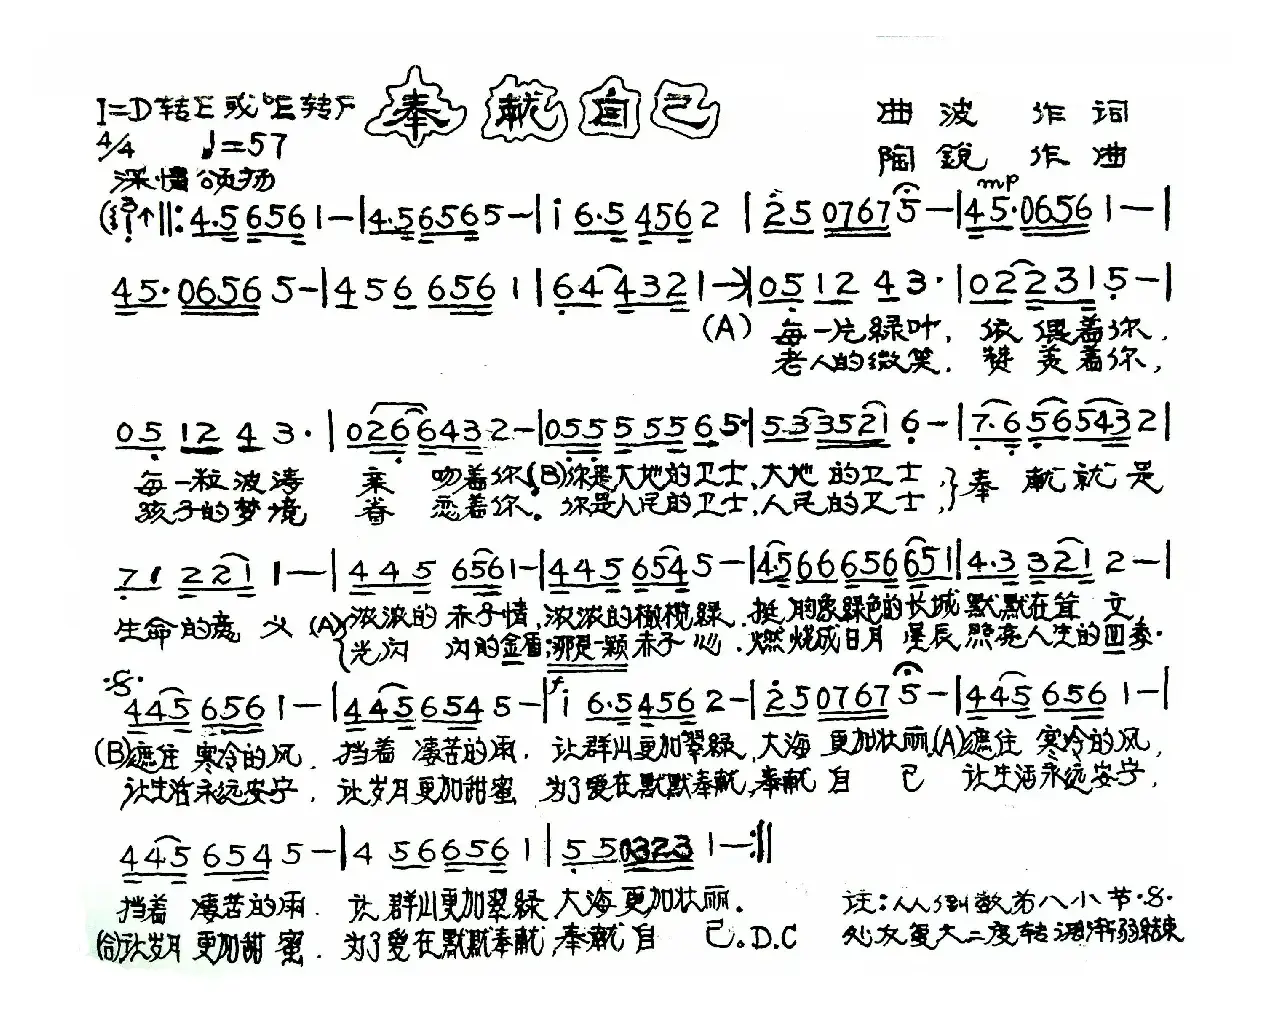 1=D转E或♭E转F 奉献自己 曲波 作词
4/4 ♩=57 陶锐 作曲
深情颂扬
mp
4·5 6561 - | 4·5 6565 - | i 6·5 4562 | 250767 5 - | 45·0656 1 - |
45·0656 5 - | 456 6561 | 64 4321 - | 05 12 43· | 022315 - |
(A) 每一片緑叶，依偎着你，
老人的微笑，赞美着你，
05 12 43· | 0266432 - | 055 555 65· | 533521 6 - | 7·6 565432 |
每一粒波涛 亲吻着你(B)你是大地的卫士，大地的卫士，}奉献就是
孩子的梦境 眷恋着你。你是人民的卫士，人民的卫士，
71 2211 - | 445 6561 - | 445 6545 - | 4·566656651 | 4·3 321 2 - |
生命的意义 (A){浓浓的赤子情，浓浓的橄榄緑，挺胸象緑色的长城默默在耸立
光闪闪的金盾；那是一颗赤子心．燃烧成日月星辰照亮人生的四季．
·S· 445 6561 - | 445 6545 - | f i 6·54562 - | 250767 5 - | 445 6561 - |
(B)遮住寒冷的风．挡着凄苦的雨．让群山更加翠緑，大海更加壮丽(A)遮住寒冷的风，
让生活永远安宁．让岁月更加甜蜜 为了爱在默默奉献，奉献自己 让生活永远安宁．
445 6545 - | 4 566561 | 5503231 - :||
挡着凄苦的雨．让群山更加翠緑 大海更加壮丽． 注：从倒数第八小节·S·
(合)让岁月更加甜蜜．为了爱在默默奉献，奉献自己。D.C 处反复大二度转调渐弱结束